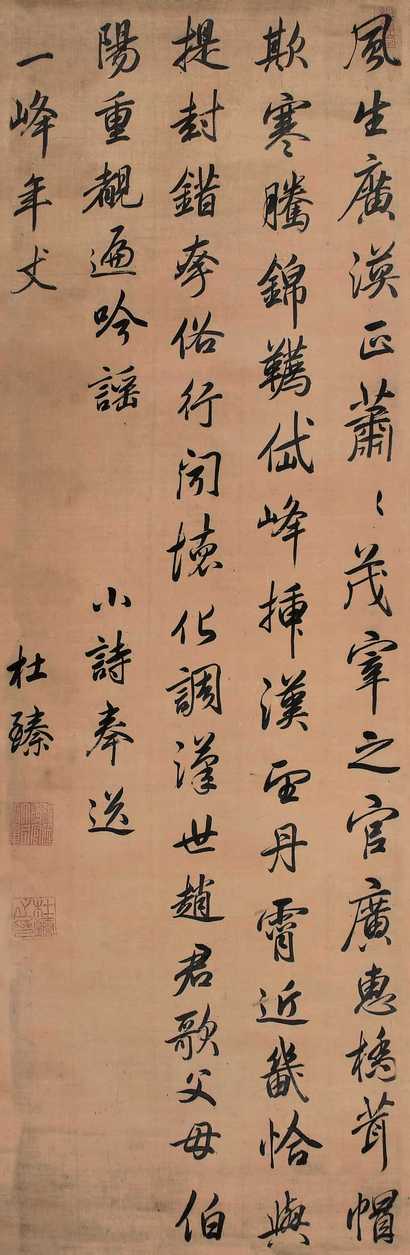 風生廣漠正蕭〻茂宰之官廣惠橋茸帽
欺寒騰錦韉岱峰插漢丹霄近畿恰與
提封錯齊俗行聞懷化調漢世趙君歌父母伯
陽重覩遍吟謠 小詩奉送
一峰年丈 杜臻
杜臻之印